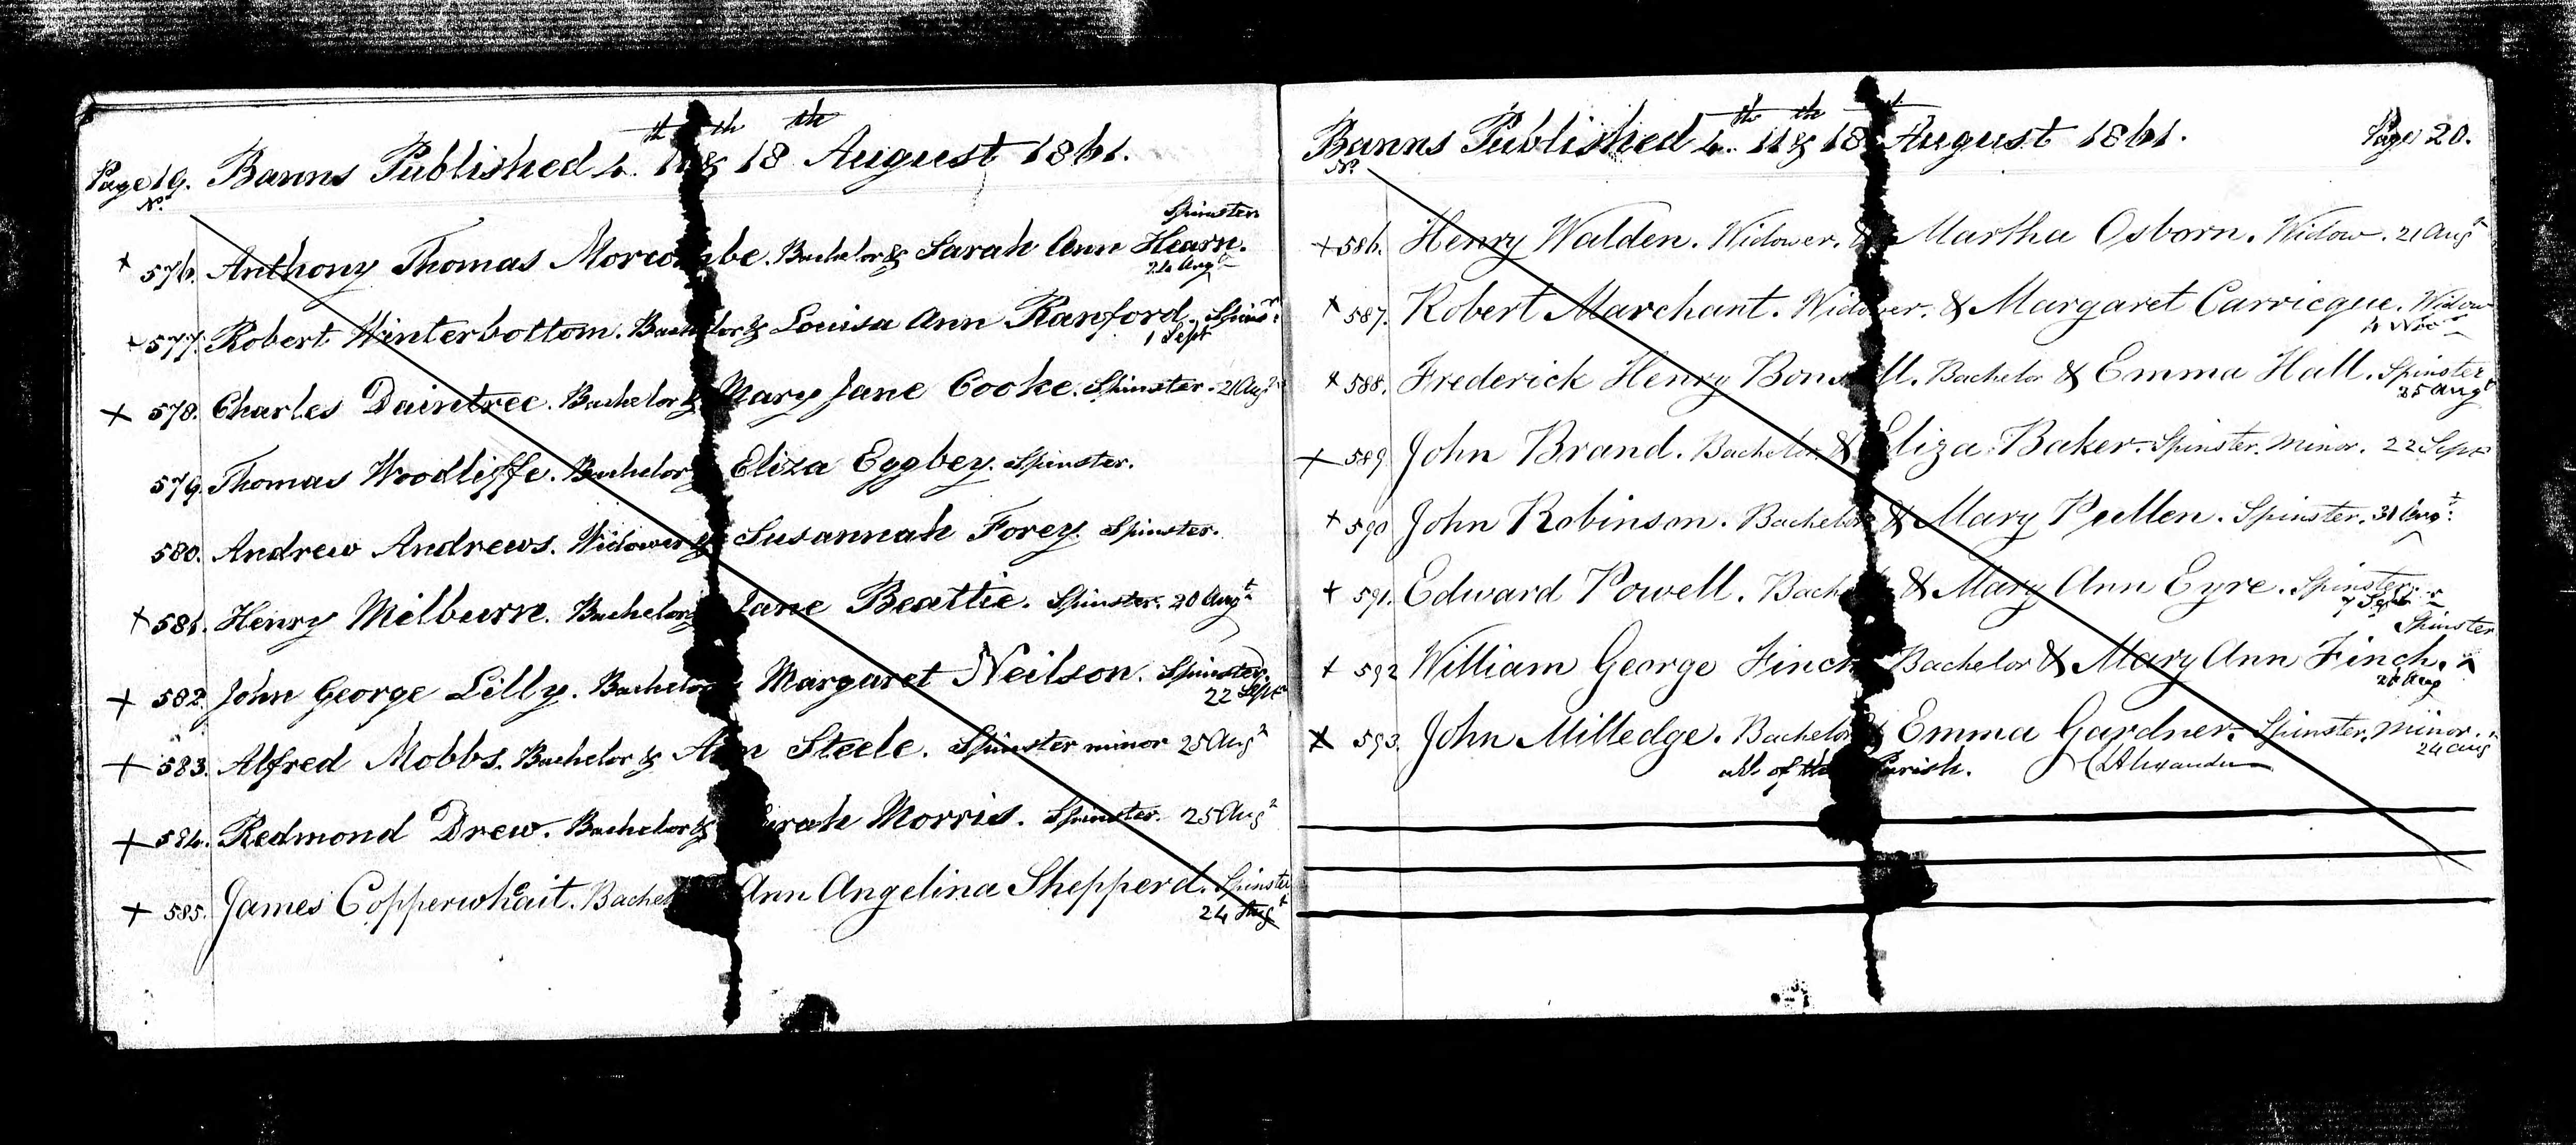 Page 19. Banns Published 4th 11th & 18th August 1861.
No.
Spinster
+ 576. Anthony Thomas Morcombe. Bachelor & Sarah Ann Hearn.
24 Augt
+ 577. Robert Winterbottom. Bachelor & Louisa Ann Ranford. Spinr.
1 Sept
+ 578. Charles Daintree. Bachelor & Mary Jane Cooke. Spinster. 21 Augt
579. Thomas Woodliffe. Bachelor & Eliza Eggbey. Spinster.
580. Andrew Andrews. Widower & Susannah Forey. Spinster.
+ 581. Henry Milburn. Bachelor & Jane Beattie. Spinster. 20 Augt
+ 582. John George Lilly. Bachelor & Margaret Neilson. Spinster.
22 Sept
+ 583. Alfred Mobbs. Bachelor & Ann Steele. Spinster minor 25 Augt
+ 584. Redmond Drew. Bachelor & Sarah Morris. Spinster. 25 Augt
+ 585. James Copperwhait. Bachelor Ann Angelina Shepperd. Spinster
24 Augt
Banns Published 4th 11th & 18 August 1861. Page 20.
No.
+ 586. Henry Walden. Widower. & Martha Osborn. Widow. 21 Augt
+ 587. Robert Marchant. Widower. & Margaret Carricque. Widow
4 Nov
+ 588. Frederick Henry Bonsell. Bachelor & Emma Hall. Spinster
25 Augt
+ 589. John Brand. Bachelor & Eliza Baker. Spinster. Minor. 22 Sept
+ 590. John Robinson. Bachelor & Mary Pullen. Spinster. 31 Augt.
+ 591. Edward Powell. Bachelor & Mary Ann Eyre. Spinster.
7 Sept
Spinster
+ 592 William George Finch Bachelor & Mary Ann Finch.
Aug
+ 593. John Milledge. Bachelor & Emma Gardner. Spinster. Minor.
24 Aug
all of this Parish. Alexander